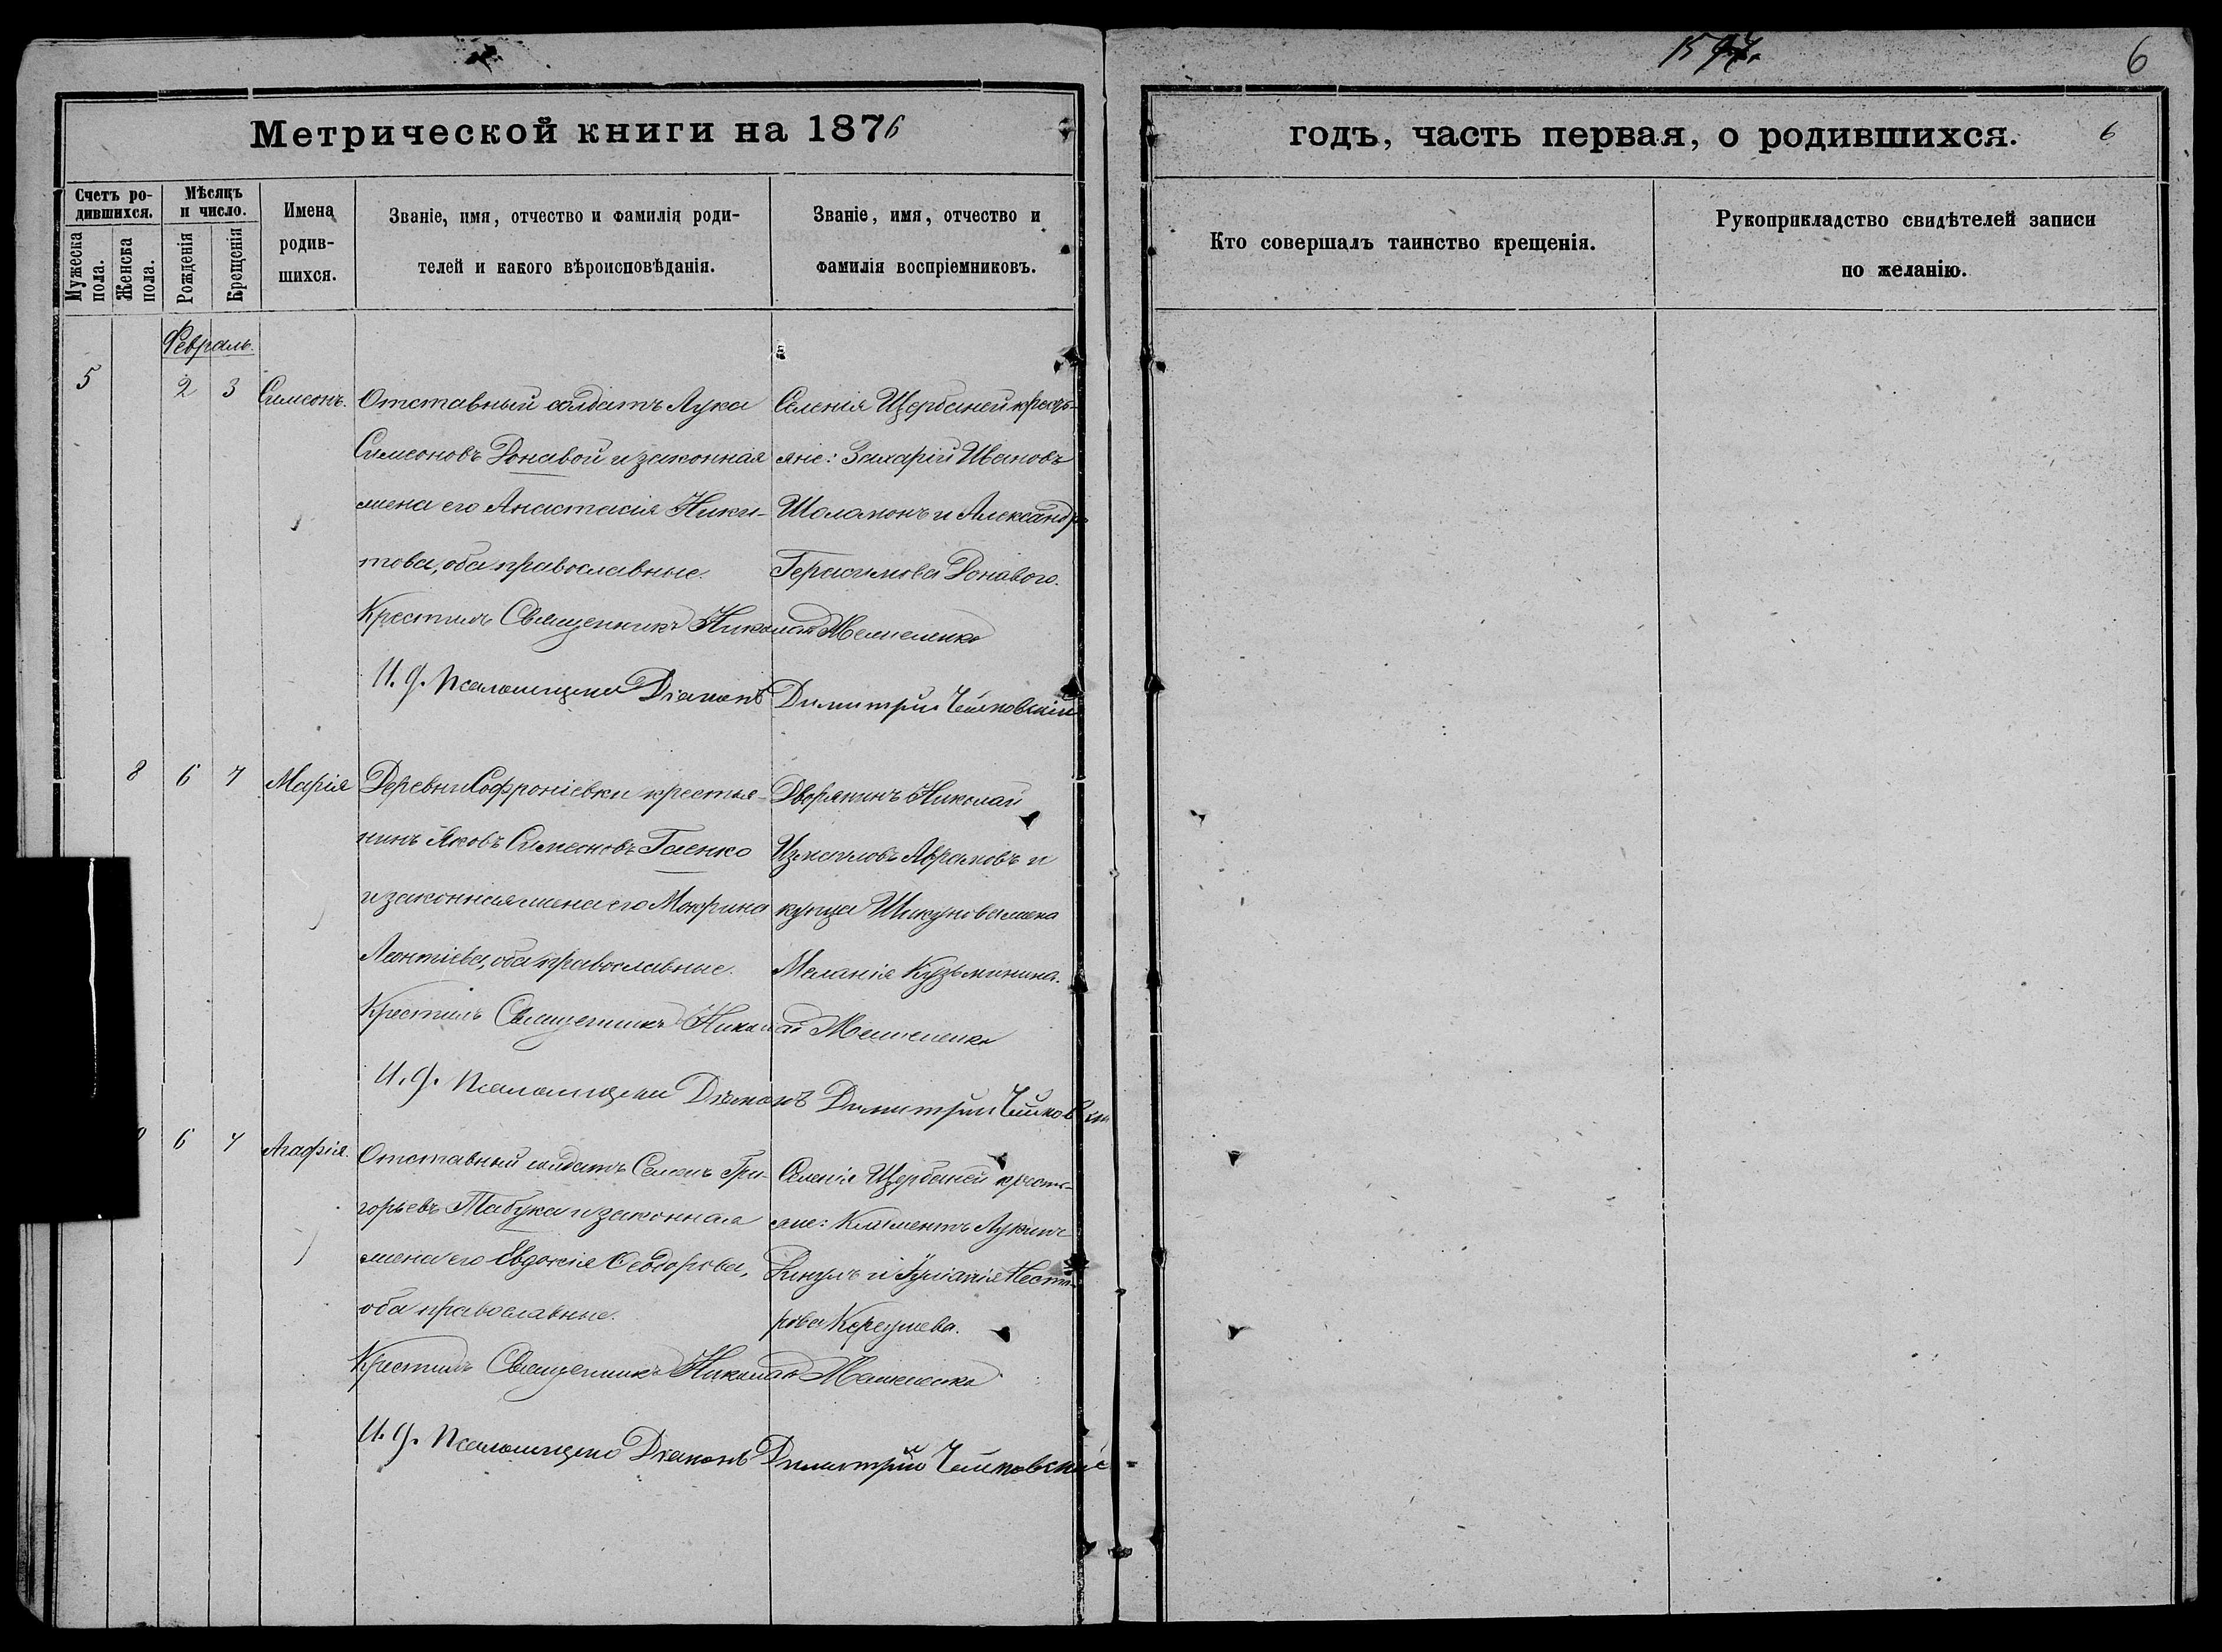 1597.
6
Метрической книги на 1876
годъ, часть первая, о родившихся.
6
Счетъ ро-
дившихся.
Мужеска пола.
Женска пола.
Мѣсяцъ
и число.
Рожденія
Крещенія
Имена
родив-
шихся.
Званіе, имя, отчество и фамилія роди-
телей и какого вѣроисповѣданія.
Званіе, имя, отчество и
фамилія воспріемниковъ.
Кто совершалъ таинство крещенія.
Рукоприкладство свидѣтелей записи
по желанію.
Февраль.
5
2 3
Симеонъ.
Отставный солдатъ Лука
Симеоновъ Донавой и законная
жена его Анастасія Ники-
това, оба православные.
Селенія Щербаней кресть-
яне: Захарій Ивановъ
Шаламонъ и Александра
Герасимова Донавого.
Крестилъ Священникъ Николай
И. д. псаломщика Діаконъ Димитрій
8 6 7
Марія
Деревни Софроніевки крестья-
нинъ Яковъ Симеоновъ Гаенко
и законная жена его Макрина
Леонтіева, оба православные.
Дворянинъ Николай
Измаиловъ Абрамовъ и
купца Шикунова жена
Меланія Кузьминина.
Крестилъ Священникъ Николай
И. д. псаломщика Діаконъ Димитрій
6 7
Агафія.
Отставный солдатъ Семенъ Гри-
горьевъ Табука и законная
жена его Евдокія Ѳеодорова,
оба православные.
Селенія Щербаней кресть-
яне: Климентъ Лукинъ
и Іуліанія Несто-
рова
Крестилъ Священникъ Николай
И. д. псаломщика Діаконъ Димитрій